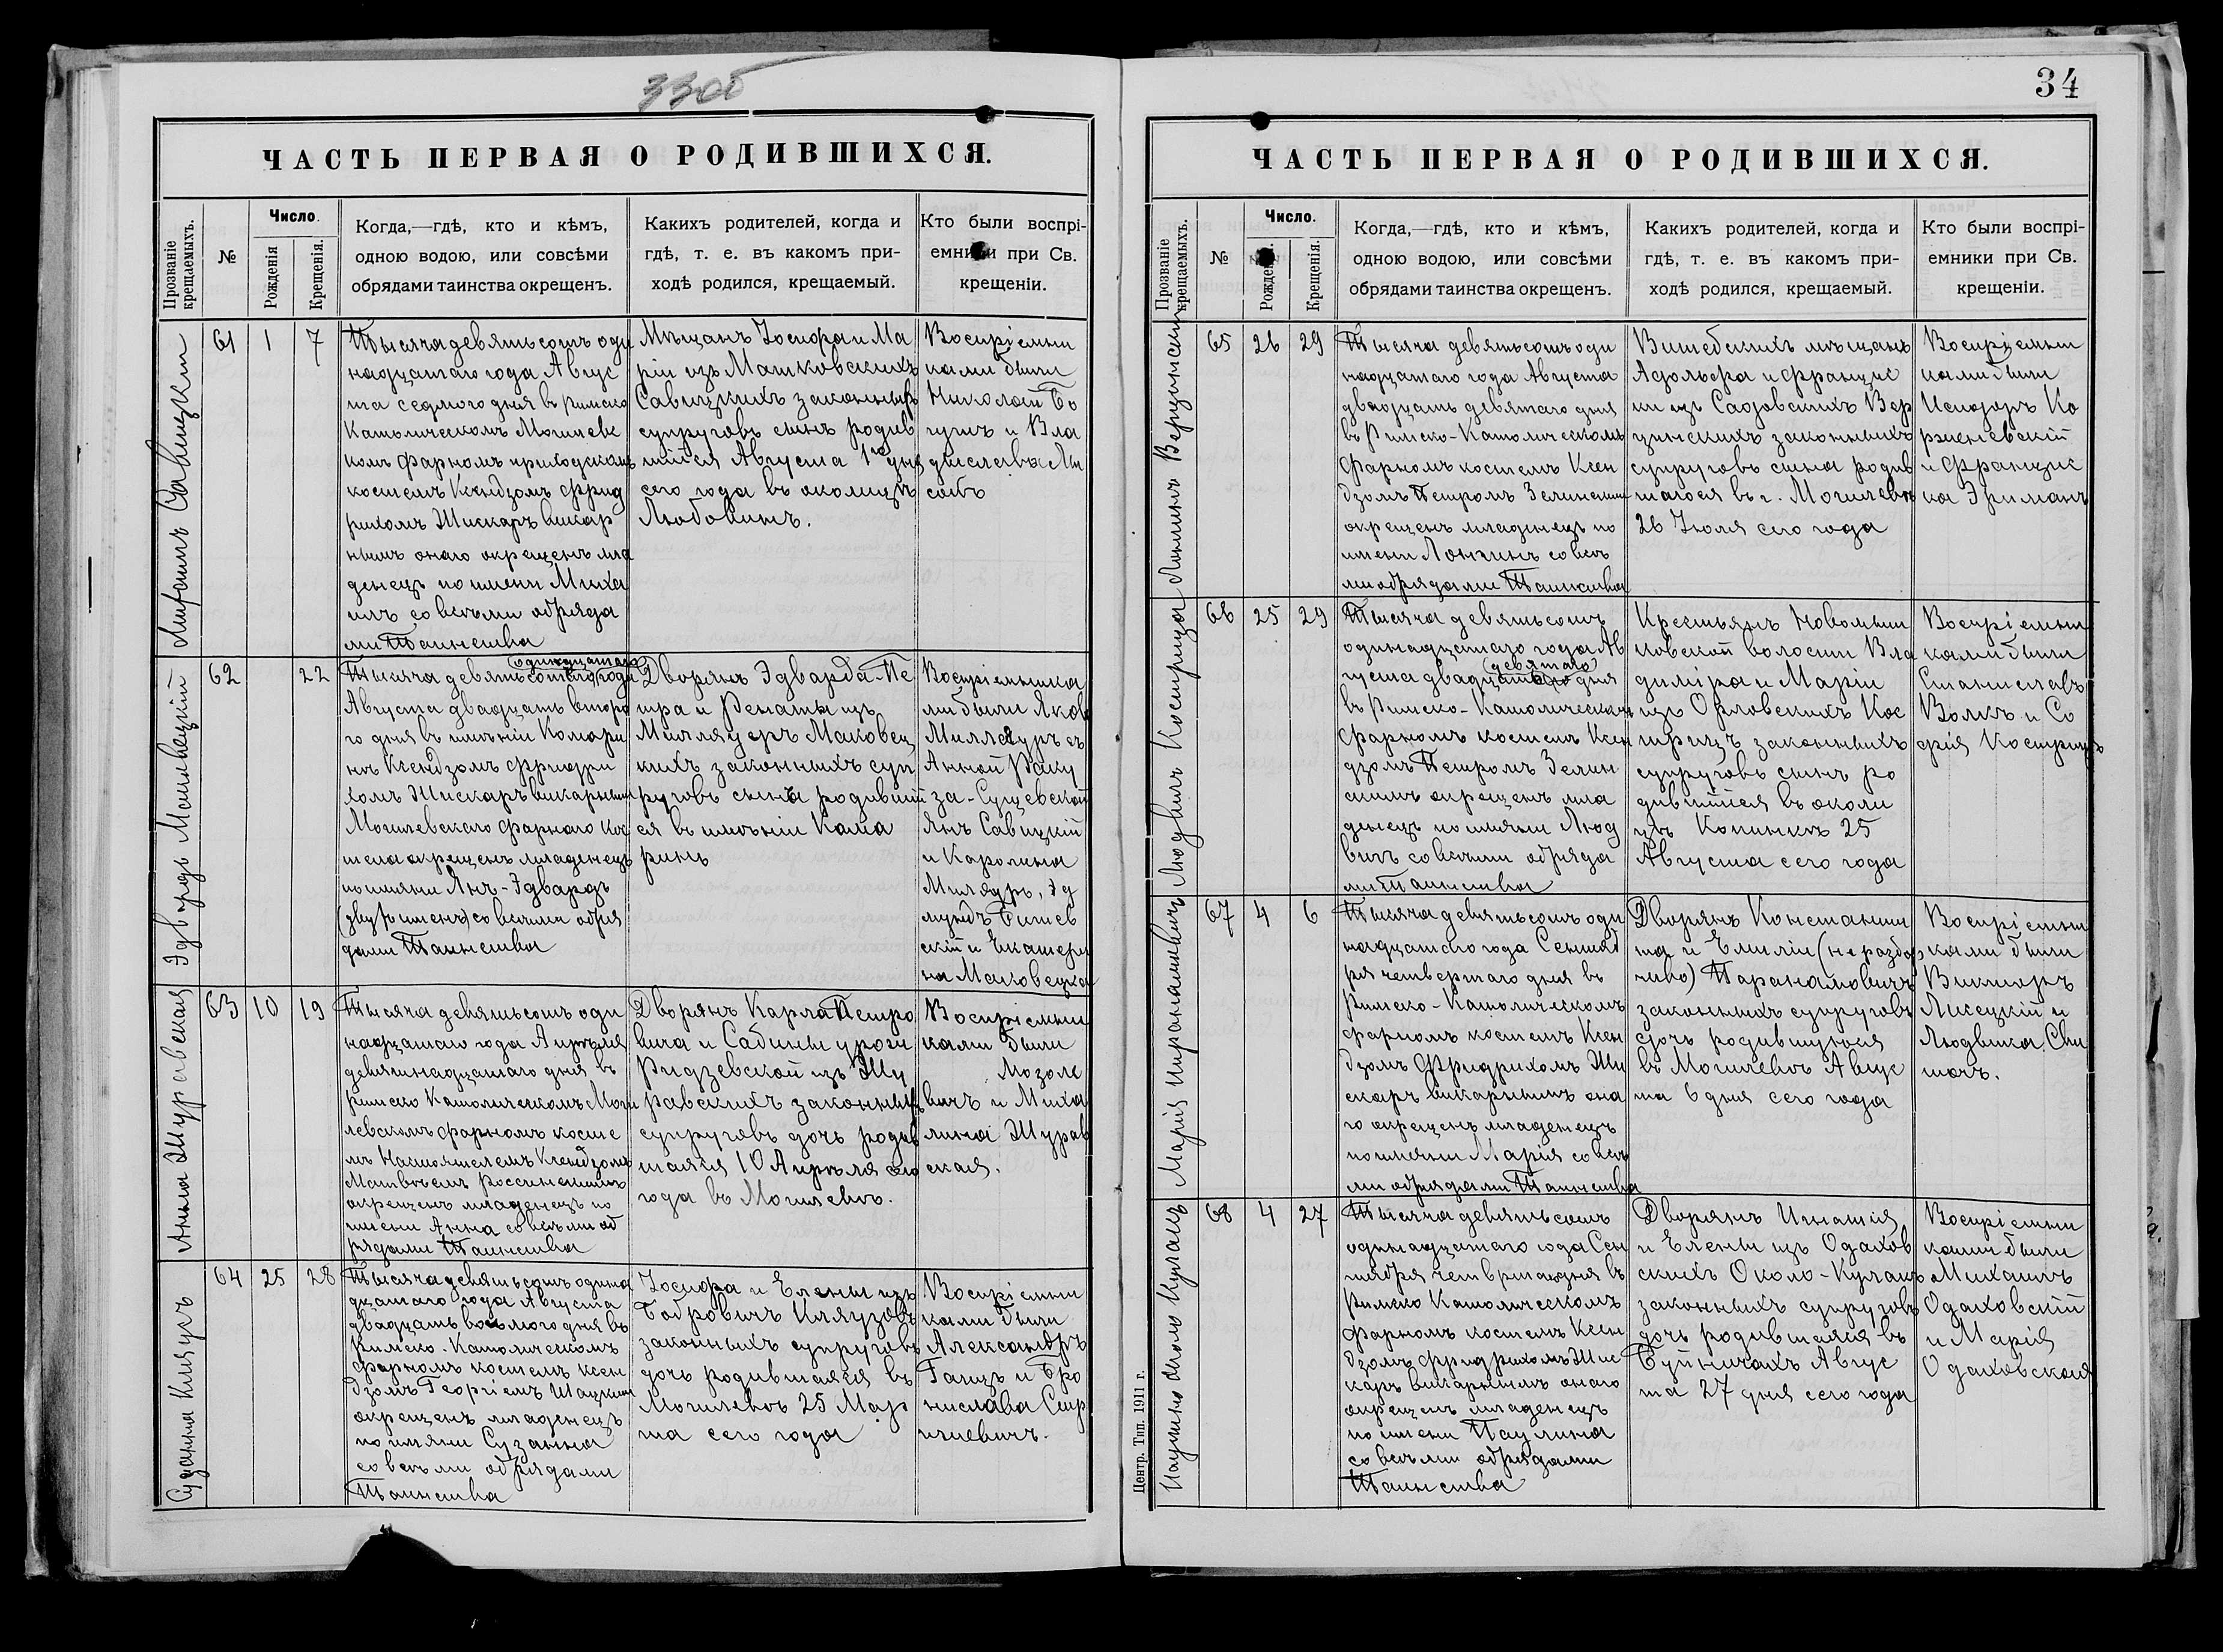 33об
ЧАСТЬ ПЕРВАЯ О РОДИВШИХСЯ.
Прозваніе крещаемыхъ.
№
Число.
Рожденія
Крещенія.
Когда,—гдѣ, кто и кѣмъ,
одною водою, или совсѣми
обрядами таинства окрещенъ.
Какихъ родителей, когда и
гдѣ, т. е. въ какомъ при-
ходѣ родился, крещаемый.
Кто были воспрі-
емники при Св.
крещеніи.
Савицкій
61
1
7
Тысяча девятьсотъ оди
надцатаго года Авгус
та седмого дня въ римско
Католическомъ Могилевс
комъ фарномъ приходскомъ
костелѣ Ксендзомъ Фрид
рихомъ Шискаръ викар
нымъ онаго окрещенъ мла
денецъ по имени Миха
илъ со всѣми обряда
ми Таинства
Мѣщанъ Іосифа и Ма
ріи изъ Машковскихъ
Савицкихъ законныхъ
супруговъ сынъ родив
шійся Августа 1го дня
сего года въ околицѣ
Любокинъ.
Воспріемни
ками были
Николай Бо
гушъ и Вла
дислава Ли
Эдвардъ
62
22
Тысяча девятьсотъ одинадцатаго года
Августа двадцать второ
го дня въ имѣніи Комари
нъ Ксендзомъ Фридри
хомъ Шискаръ викарнымъ
Могилевскаго фарнаго Кос
тела окрещенъ младенецъ
по имяни Янъ-Эдвардъ
(двухъ именъ) со всѣми обря
дами Таинства
Дворянъ Эдварда-Пе
тра и Ренаты изъ
Миллауеръ Маковец
кихъ законныхъ суп
руговъ сына родивший
ся въ имѣніи Кома
ринъ
Воспріемника
ми были Яковъ
съ
Анной Раку
за-Сущевской
Янъ Савицкій
и Каролина
Эд
мундъ
скій и Екатери
на Маковецка
Анна Журавская
63
10
19
Тысяча девятьсотъ оди
надцатаго года Апрѣля
девятнадцатаго дня въ
римско Католическомъ Моги
левскомъ фарномъ косте
лѣ Настоятелемъ Ксендзомъ
окрещенъ младенецъ по
имени Анна со всѣми об
рядами Таинства
Дворянъ Карла Петро
вича и Сабины урож
Ридзевской изъ Жу
равскихъ законныхъ
супруговъ дочь родив
шаяся 10 Апрѣля сего
года въ Могилевѣ.
Воспріемни
ками были
Мозоле
вичъ и Миха
лина Журав
ская.
Сузанна Клязугъ
64
25
28
Тысяча девятьсотъ одина
дцатаго года Августа
двадцать восьмого дня въ
Римско-Католическомъ
фарномъ костелѣ Ксен
дзомъ Георгіемъ Шацкимъ
окрещенъ младенецъ
по имяни Сузанна
со всѣми обрядами
Таинства
Іосифа и Елены изъ
Бобровичъ Клязуговъ
законныхъ супруговъ
дочь родившаяся въ
Могилевѣ 25 Мар
та сего года
Воспріемни
ками были
Александръ
Ганцъ и Бро
нислава
34
ЧАСТЬ ПЕРВАЯ О РОДИВШИХСЯ.
Прозваніе крещаемыхъ.
№
Число.
Рожденія.
Крещенія.
Когда,—гдѣ, кто и кѣмъ,
одною водою, или совсѣми
обрядами таинства окрещенъ.
Какихъ родителей, когда и
гдѣ, т. е. въ какомъ при-
ходѣ родился, крещаемый.
Кто были воспрі-
емники при Св.
крещеніи.
Лонгинъ Верцинскій
65
26
29
Тысяча девятьсотъ оди
надцатаго года Августа
двадцать девятаго дня
въ Римско-Католическомъ
фарномъ костелѣ Ксен
дзомъ Петромъ Зелинскимъ
окрещенъ младенецъ по
имени Лонгинъ со всѣ
ми обрядами Таинства
Витебскихъ мѣщанъ
Адольфа и Францис
ки изъ Садовскихъ Вер
цинскихъ законныхъ
супруговъ сына родив
шагося въ г. Могилевѣ
26 Іюля сего года
Воспріемни
ками были
Исидоръ Ко
рженевскій
и Францис
ка Эриманъ
Людвигъ Кострица
66
25
29
Тысяча девятьсотъ
одинадцатаго года Ав
густа двадцать девятаго дня
въ Римско-Католическомъ
фарномъ костелѣ Ксен
дзомъ Петромъ Зелин
скимъ окрещенъ мла
денецъ по имяни Люд
вигъ со всѣми обряда
ми Таинства
Крестьянъ
волости Вла
диміра и Маріи
изъ Орловскихъ Кос
трицъ законныхъ
супруговъ сынъ ро
дившійся въ околи
цѣ Копинкѣ 25
Августа сего года
Воспріемни
ками были
Станиславъ
Волкъ и Со
фія Кострица
Марія
67
4
6
Тысяча девятьсотъ оди
надцатаго года Сентяб
ря четвертаго дня въ
Римско-Католическомъ
фарномъ костелѣ Ксен
дзомъ Фридрихомъ Ши
скаръ викарнымъ она
го окрещенъ младенецъ
по имяни Марія со всѣ
ми обрядами Таинства
Дворянъ Константи
на и Емиліи (неразбор
чиво) Паранамовичъ
законныхъ супруговъ
дочь родившуюся
въ Могилевѣ Авгус
та 6 дня сего года
Воспріемни
ками были
Викторъ
Лисецкій и
Людвика Сви
Паулина Около Кулакъ
68
4
27
Тысяча девятьсотъ
одинадцатаго года Сен
тября четвертаго дня въ
Римско Католическомъ
фарномъ костелѣ Ксен
дзомъ Фридрихомъ Шис
каръ викарнымъ онаго
окрещенъ младенецъ
по имени Паулина
со всѣми обрядами
Таинства
Дворянъ Игнатія
и Елены изъ Одахов
скихъ Около-Кулакъ
законныхъ супруговъ
дочь родившаяся въ
Буйничахъ Авгус
та 27 дня сего года
Воспріемни
ками были
Михаилъ
Одаховскій
и Марія
Одаховская
Центр. Тип. 1911 г.